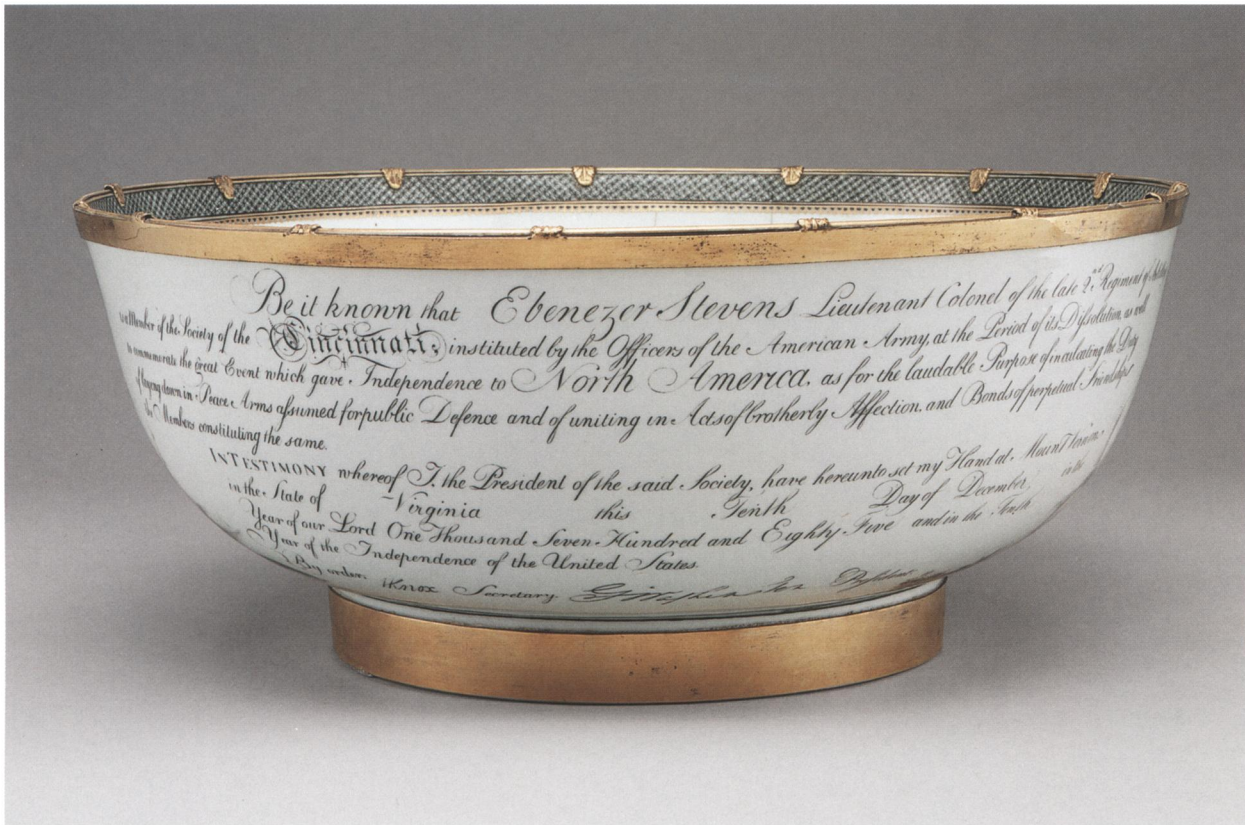 Be it known that Ebenezer Stevens Lieutenant Colonel of the late 2.nd Regiment of
is a Member of the Society of the Cincinnati, instituted by the Officers of the American Army, at the Period of its Dissolution, as well
to commemorate the great Event which gave Independence to North America, as for the laudable Purpose of inculcating the Duty
of laying down in Peace Arms assumed for public Defence and of uniting in Acts of brotherly Affection, and Bonds of perpetual Friendship
the Members constituting the same.
IN TESTIMONY whereof I, the President of the said Society, have hereunto set my Hand at Mount Vernon
in the State of Virginia this Tenth Day of December in the
Year of our Lord One Thousand Seven Hundred and Eighty Five and in the Tenth
Year of the Independence of the United States.
By order, Knox Secretary. G Washington President